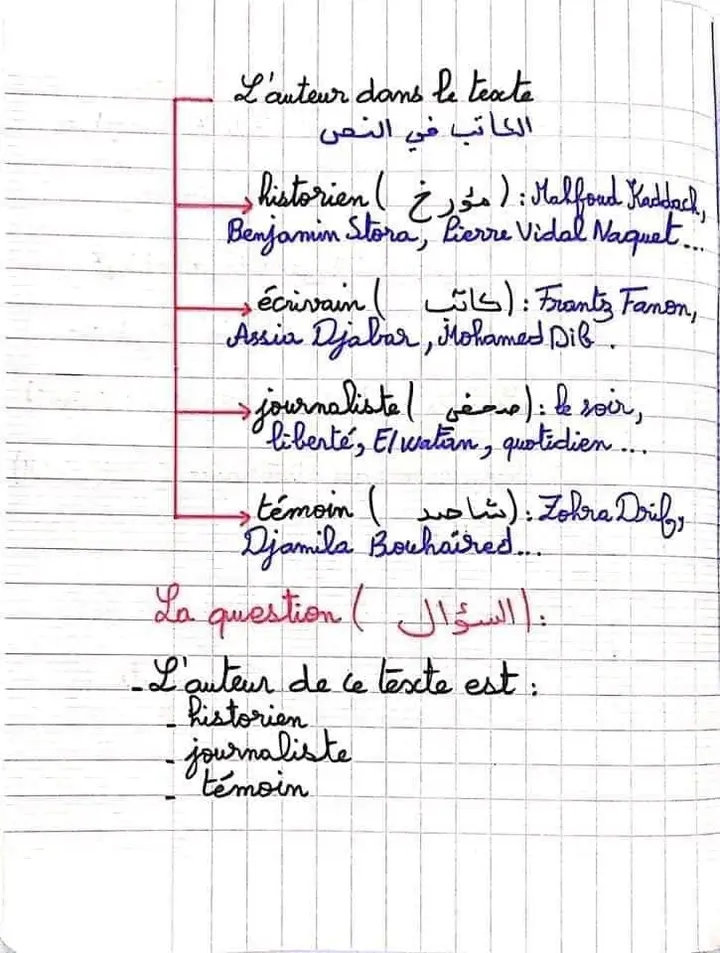 L'auteur dans le texte
الكاتب في النص
historien ( مؤرخ ) : Malfoud Kaddach,
Benjamin Stora, Pierre Vidal Naquet...
écrivain ( كاتب ) : Frantz Fanon,
Assia Djabar, Mohamed Dib .
journaliste ( صحفي ) : le soir,
liberté, El watan, quotidien ...
témoin ( شاهد ) : Zohra Drif,
Djamila Bouhaired...
La question ( السؤال ) :
- L'auteur de ce texte est :
- historien
- journaliste
- témoin